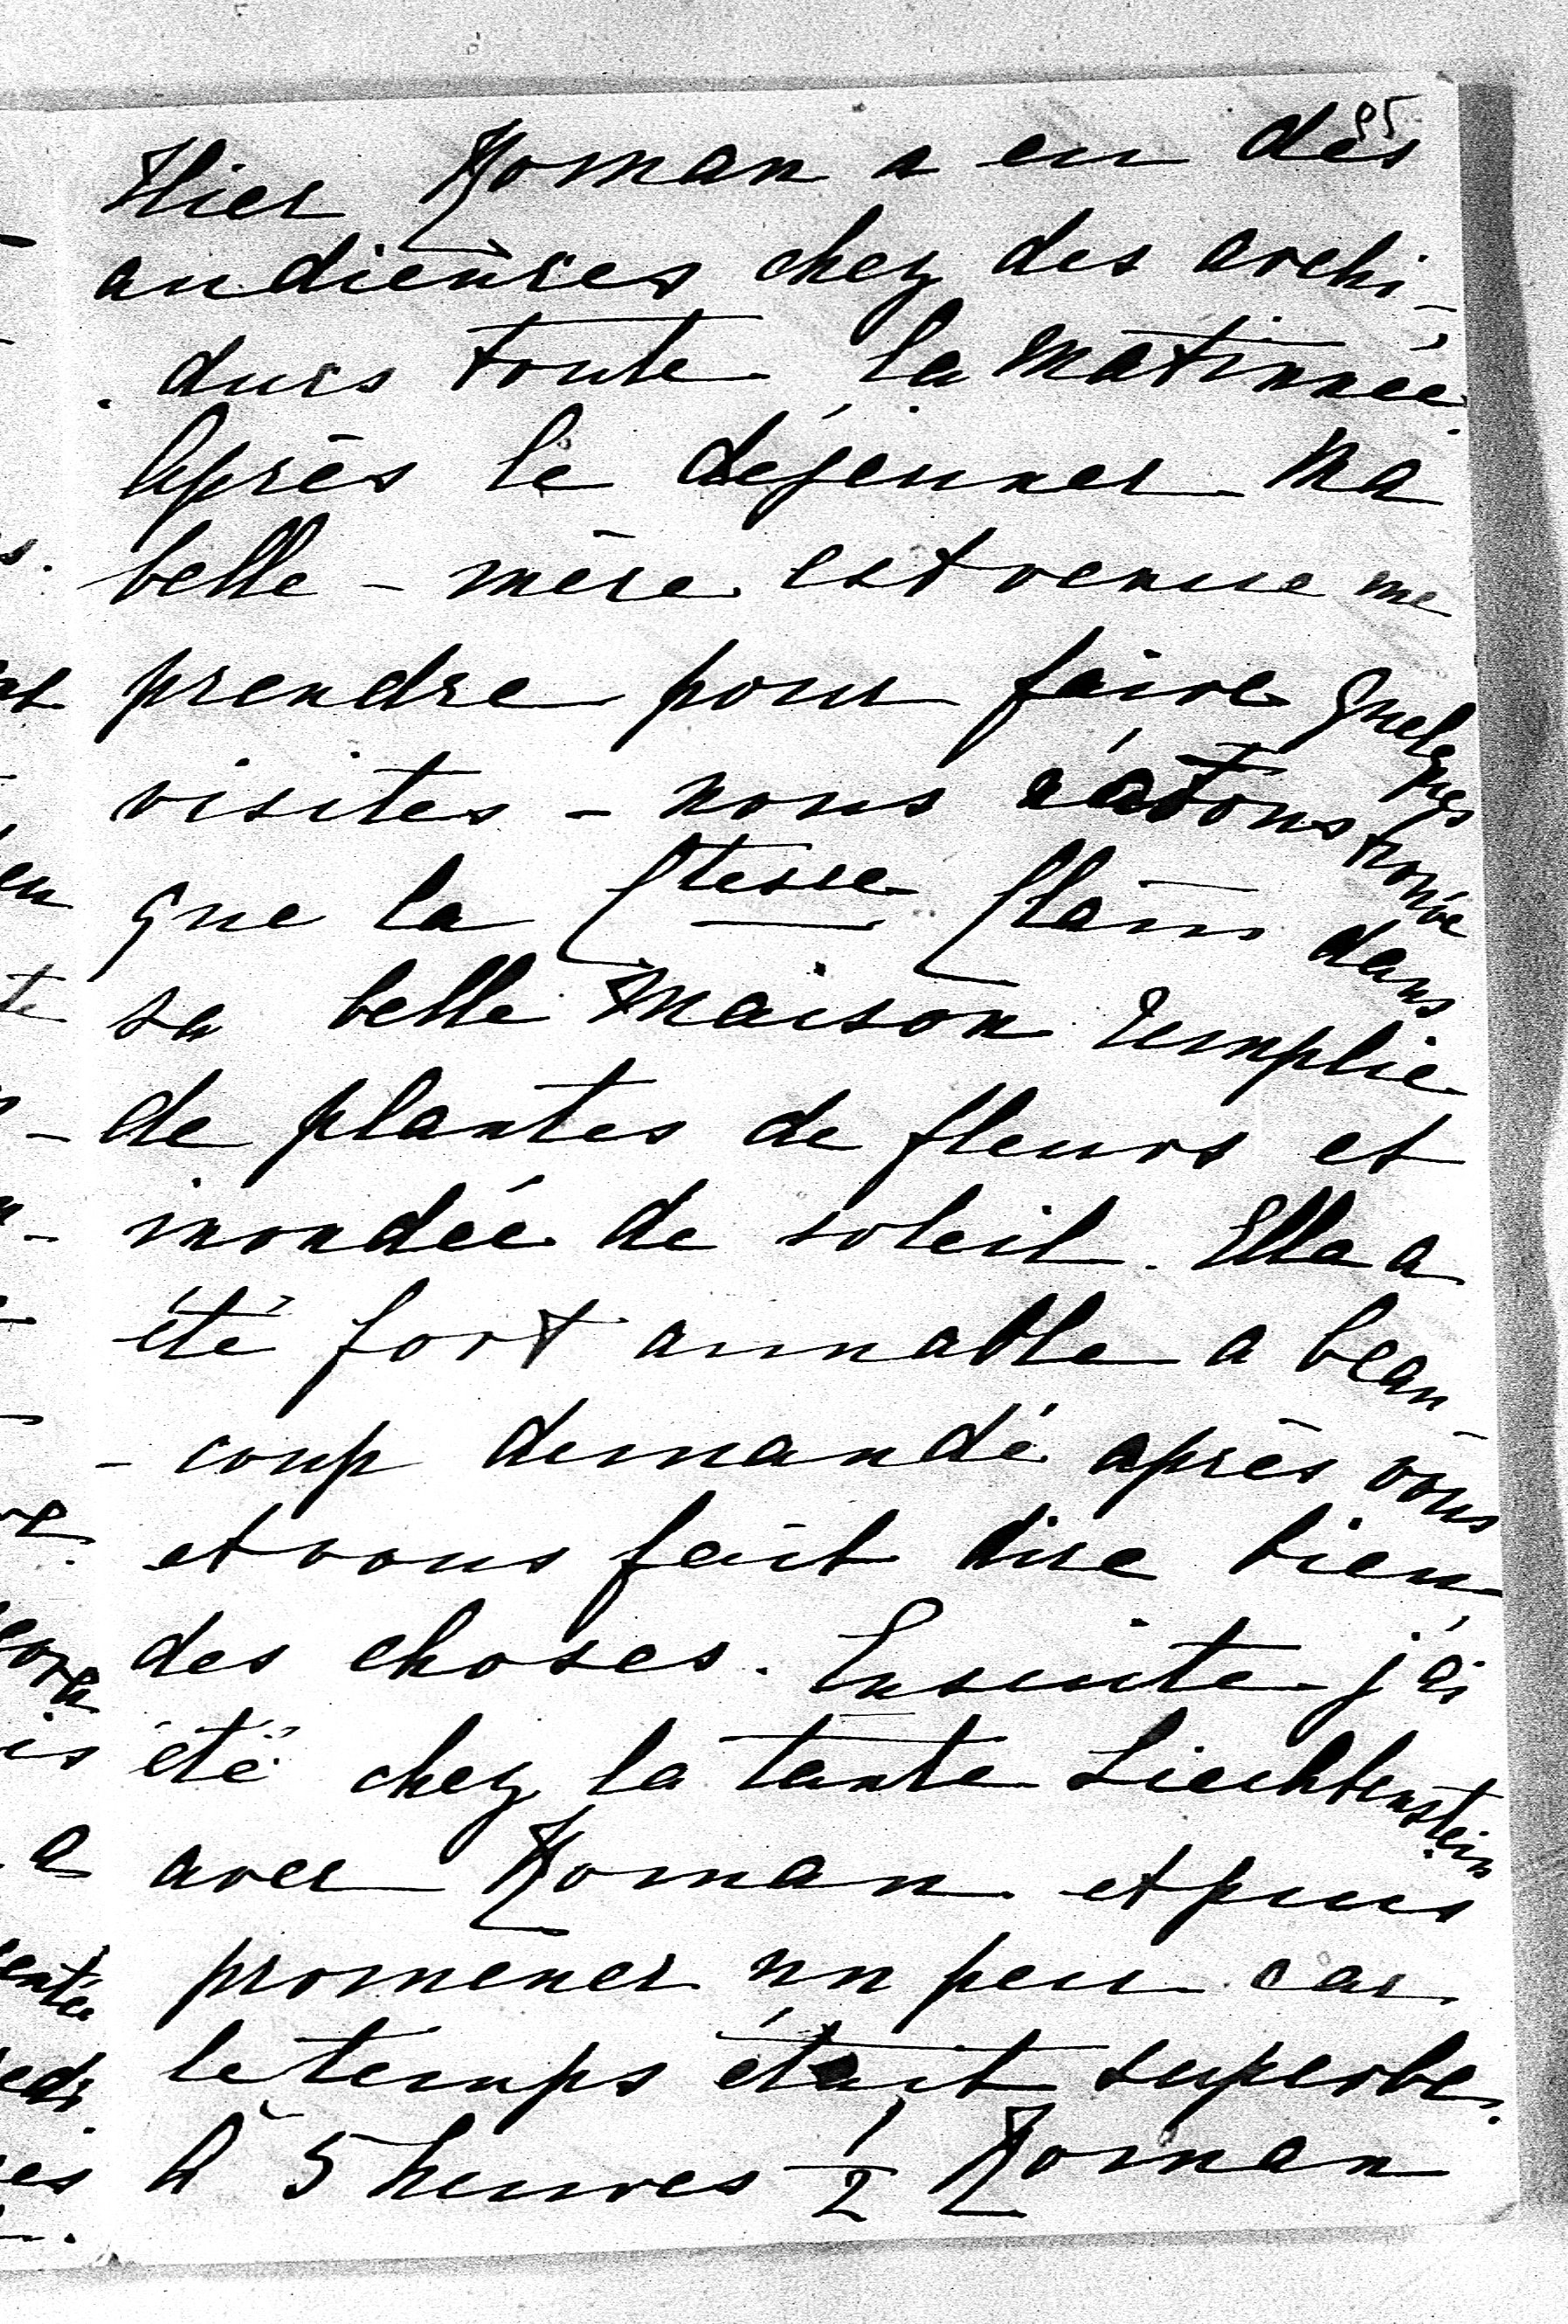 95
Hier Roman a eu des
audiences chez des archi-
ducs toute la matinnée.
Après le déjeuner ma
belle - mère est venue me
prendre pour faire quelques
visites - nous n'avons trouvé
que la Ctesse Clam dans
sa belle maison remplie
de plantes de fleurs et
inondée de soleil. Elle a
été fort aimable a beau-
- coup demandé après vous
et vous fait dire bien
des choses. Ensuite j'ai
été chez la tante Liechtenstein
avec Roman et puis
promener un peu car
le temps était superbe.
A 5 heures 1/2 Roman